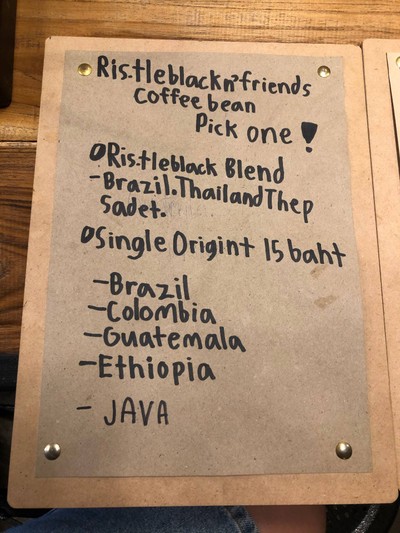 Ristleblackn'friends
Coffee bean
Pick one!
Ristleblack Blend
-Brazil.Thailand Thep
Sadet.
Single Origint 15 baht
-Brazil
-Colombia
-Guatemala
-Ethiopia
- JAVA